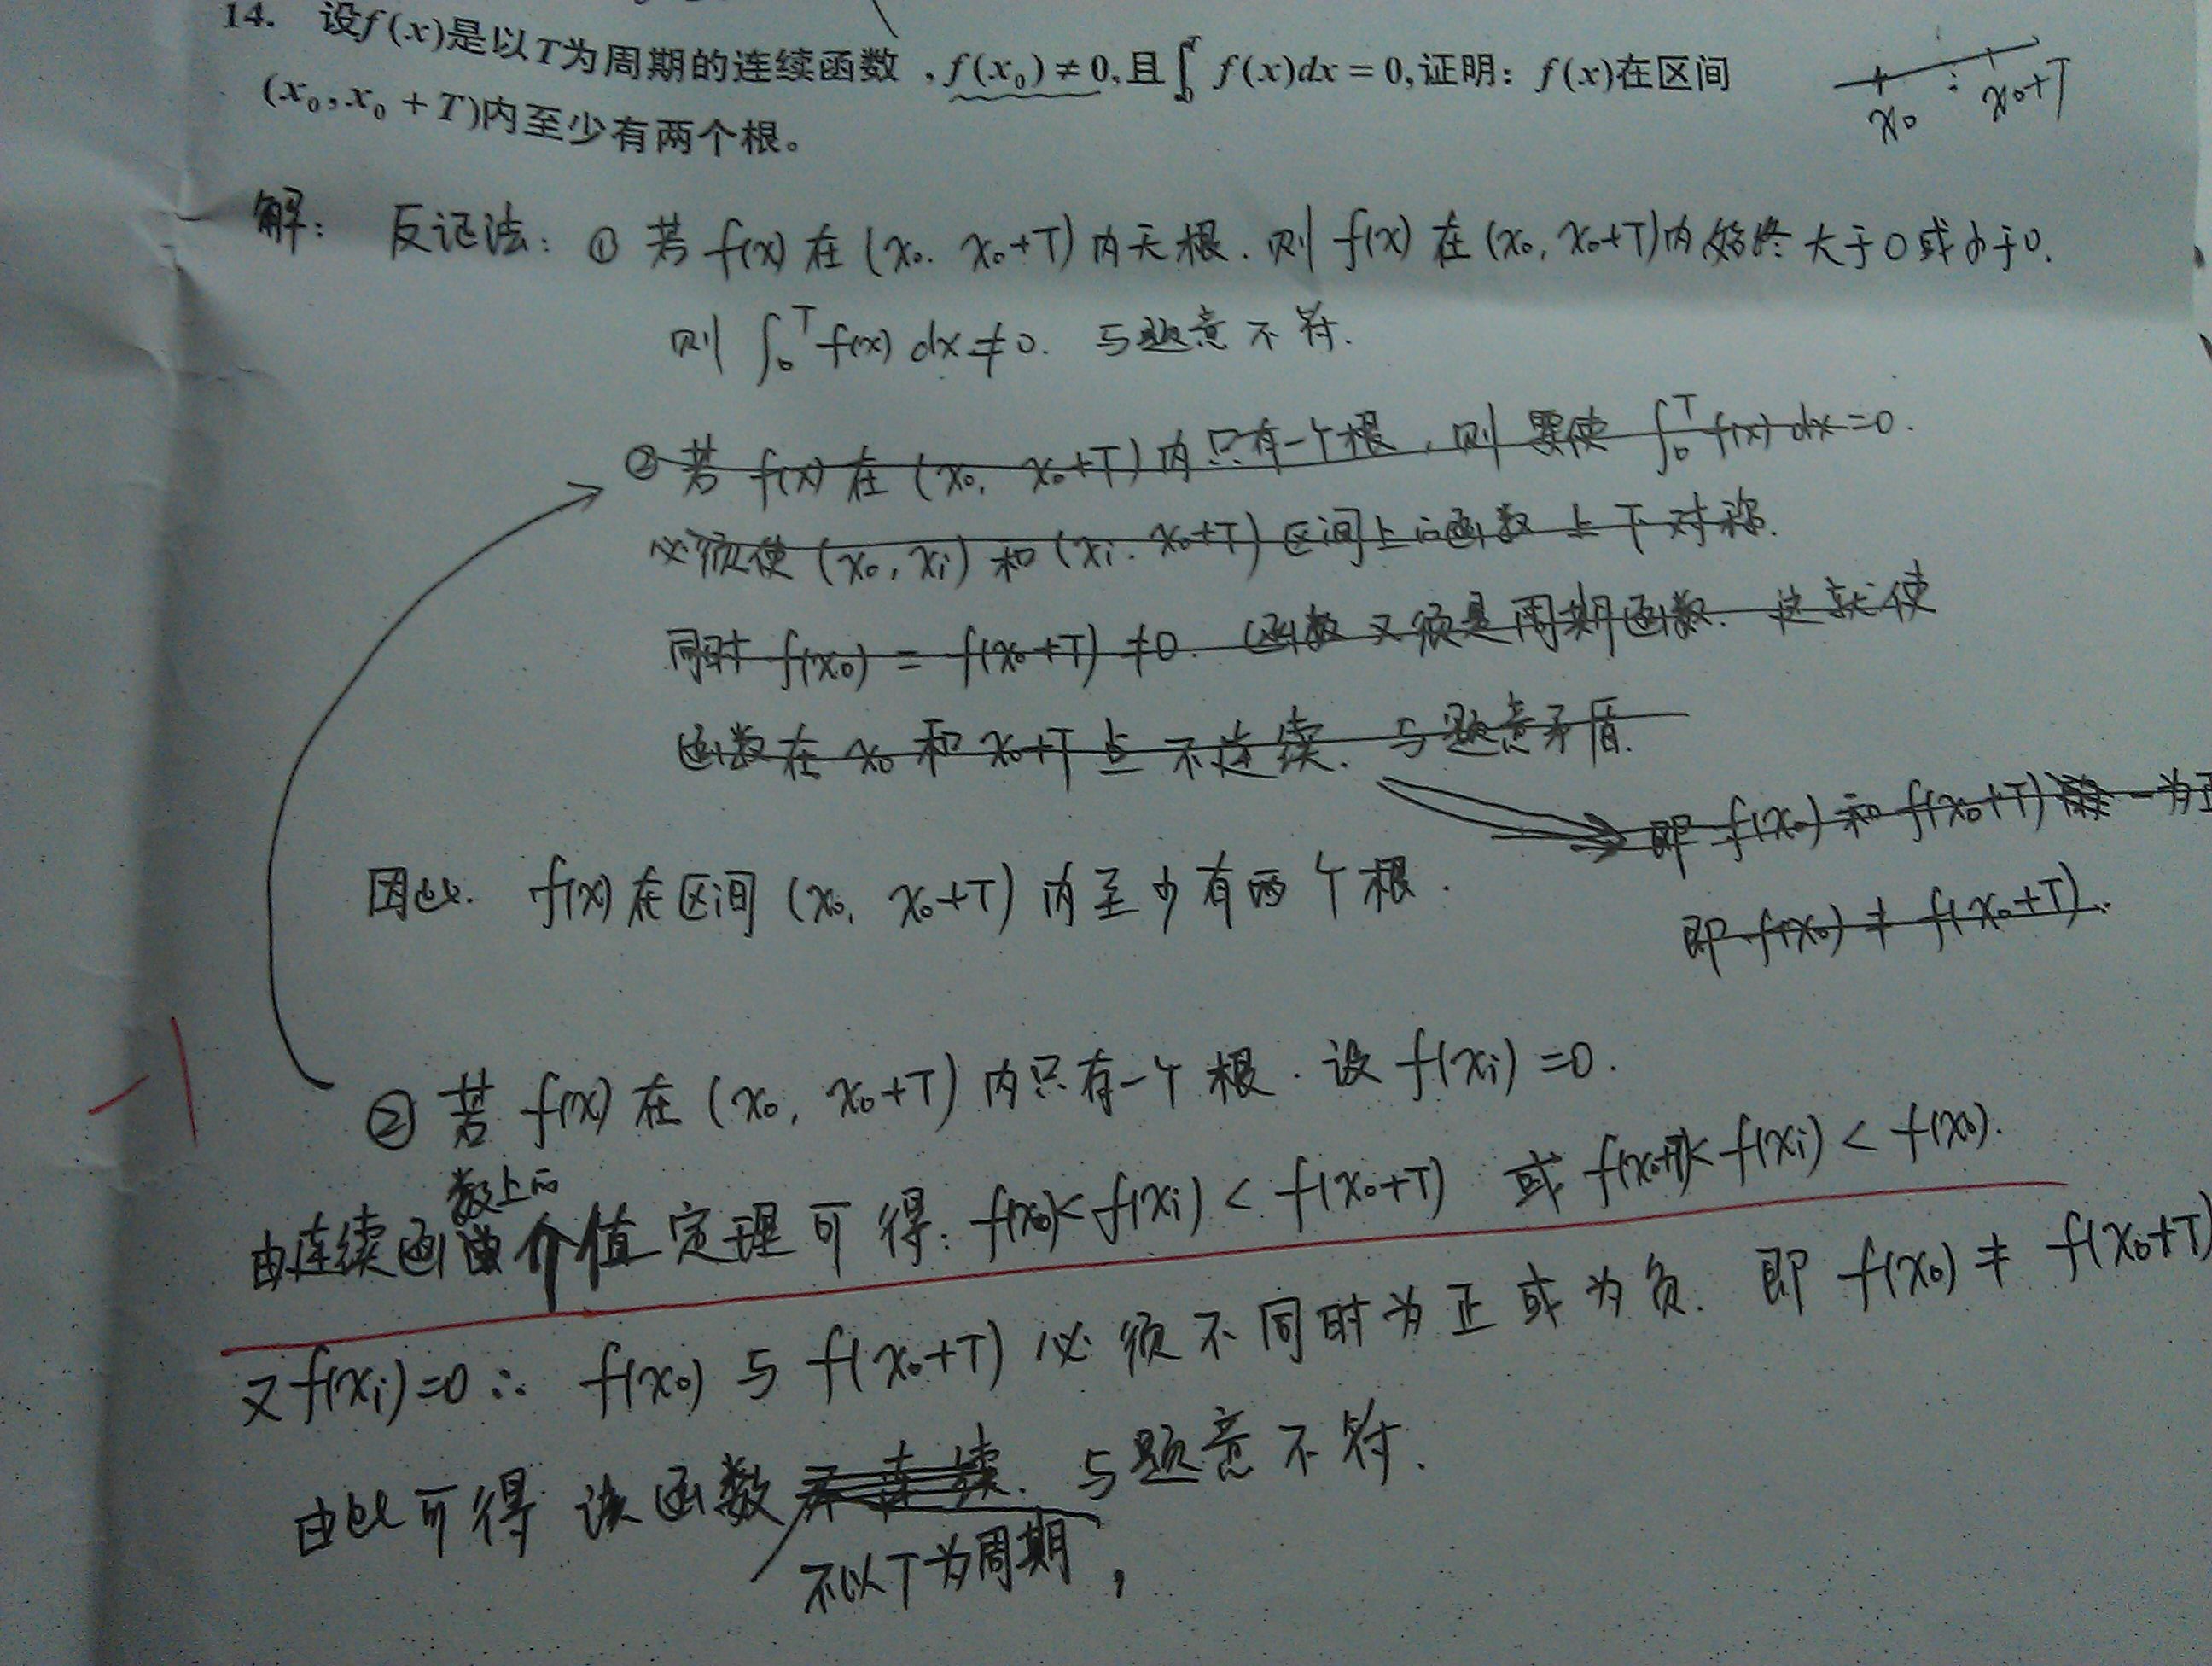 14. 设f(x)是以T为周期的连续函数,f(x₀)≠0,且∫₀ᵀ f(x)dx=0,证明：f(x)在区间
(x₀,x₀+T)内至少有两个根。
x₀ x₀+T
解： 反证法：① 若 f(x) 在 (x₀, x₀+T) 内无根. 则 f(x) 在 (x₀, x₀+T)内始终大于0或小于0.
则 ∫₀ᵀ f(x) dx≠0. 与题意不符.
② 若 f(x) 在 (x₀, x₀+T) 内只有一个根, 则 要使 ∫₀ᵀ f(x) dx=0.
必须使 (x₀, xᵢ) 和 (xᵢ, x₀+T) 区间上的函数上下对称.
同时 f(x₀) = f(x₀+T) ≠0. 函数又须是周期函数. 这就使
函数在 x₀ 和 x₀+T 点不连续. 与题意矛盾.
即 f(x₀) 和 f(x₀+T) 一为正
即 f(x₀) ≠ f(x₀+T).
因此. f(x) 在区间 (x₀, x₀+T) 内至少有两个根.
-1
② 若 f(x) 在 (x₀, x₀+T) 内只有一个根. 设 f(xᵢ)=0.
由连续函数上的介值定理可得: f(x₀)< f(xᵢ) < f(x₀+T) 或 f(x₀+T)< f(xᵢ) < f(x₀).
又f(xᵢ)=0 ∴ f(x₀) 与 f(x₀+T) 必须不同时为正或为负. 即 f(x₀) ≠ f(x₀+T)
由此可得 该函数 不连续. 与题意不符.
不以T为周期,